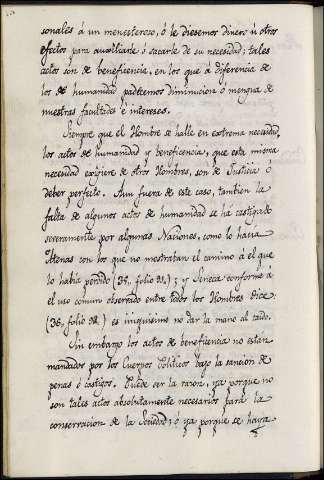 sonales á un menesteroso, ó le diesemos dinero ú otros
efectos para auxiliarle ó sacarle de su necesidad; tales
actos son de beneficencia, en los que á diferencia de
los de humanidad padecemos diminucion ó mengua de
nuestras facultades é intereses.
Siempre que el Hombre se halle en extrema necesidad,
los actos de humanidad y beneficencia, que esta misma
necesidad exigiere de otros Hombres, son de Justicia ó
deber perfecto. Aun fuera de este caso, tambien la
falta de algunos actos de humanidad se ha castigado
severamente por algunas Naciones, como lo hacia
Atenas con los que no mostraban el camino a el que
lo habia perdido (38, folio 92.); y Seneca conforme á
el uso comun observado entre todos los Hombres dice
(36, folio 92.) es iniquisimo no dar la mano al caido.
Sin embargo los actos de beneficencia no están
mandados por los Cuerpos Politicos bajo la sancion de
penas ó castigos. Puede ser la razon, ya porque no
son tales actos absolutamente necesarios para la
conservacion de la Sociedad; ó ya porque se haya